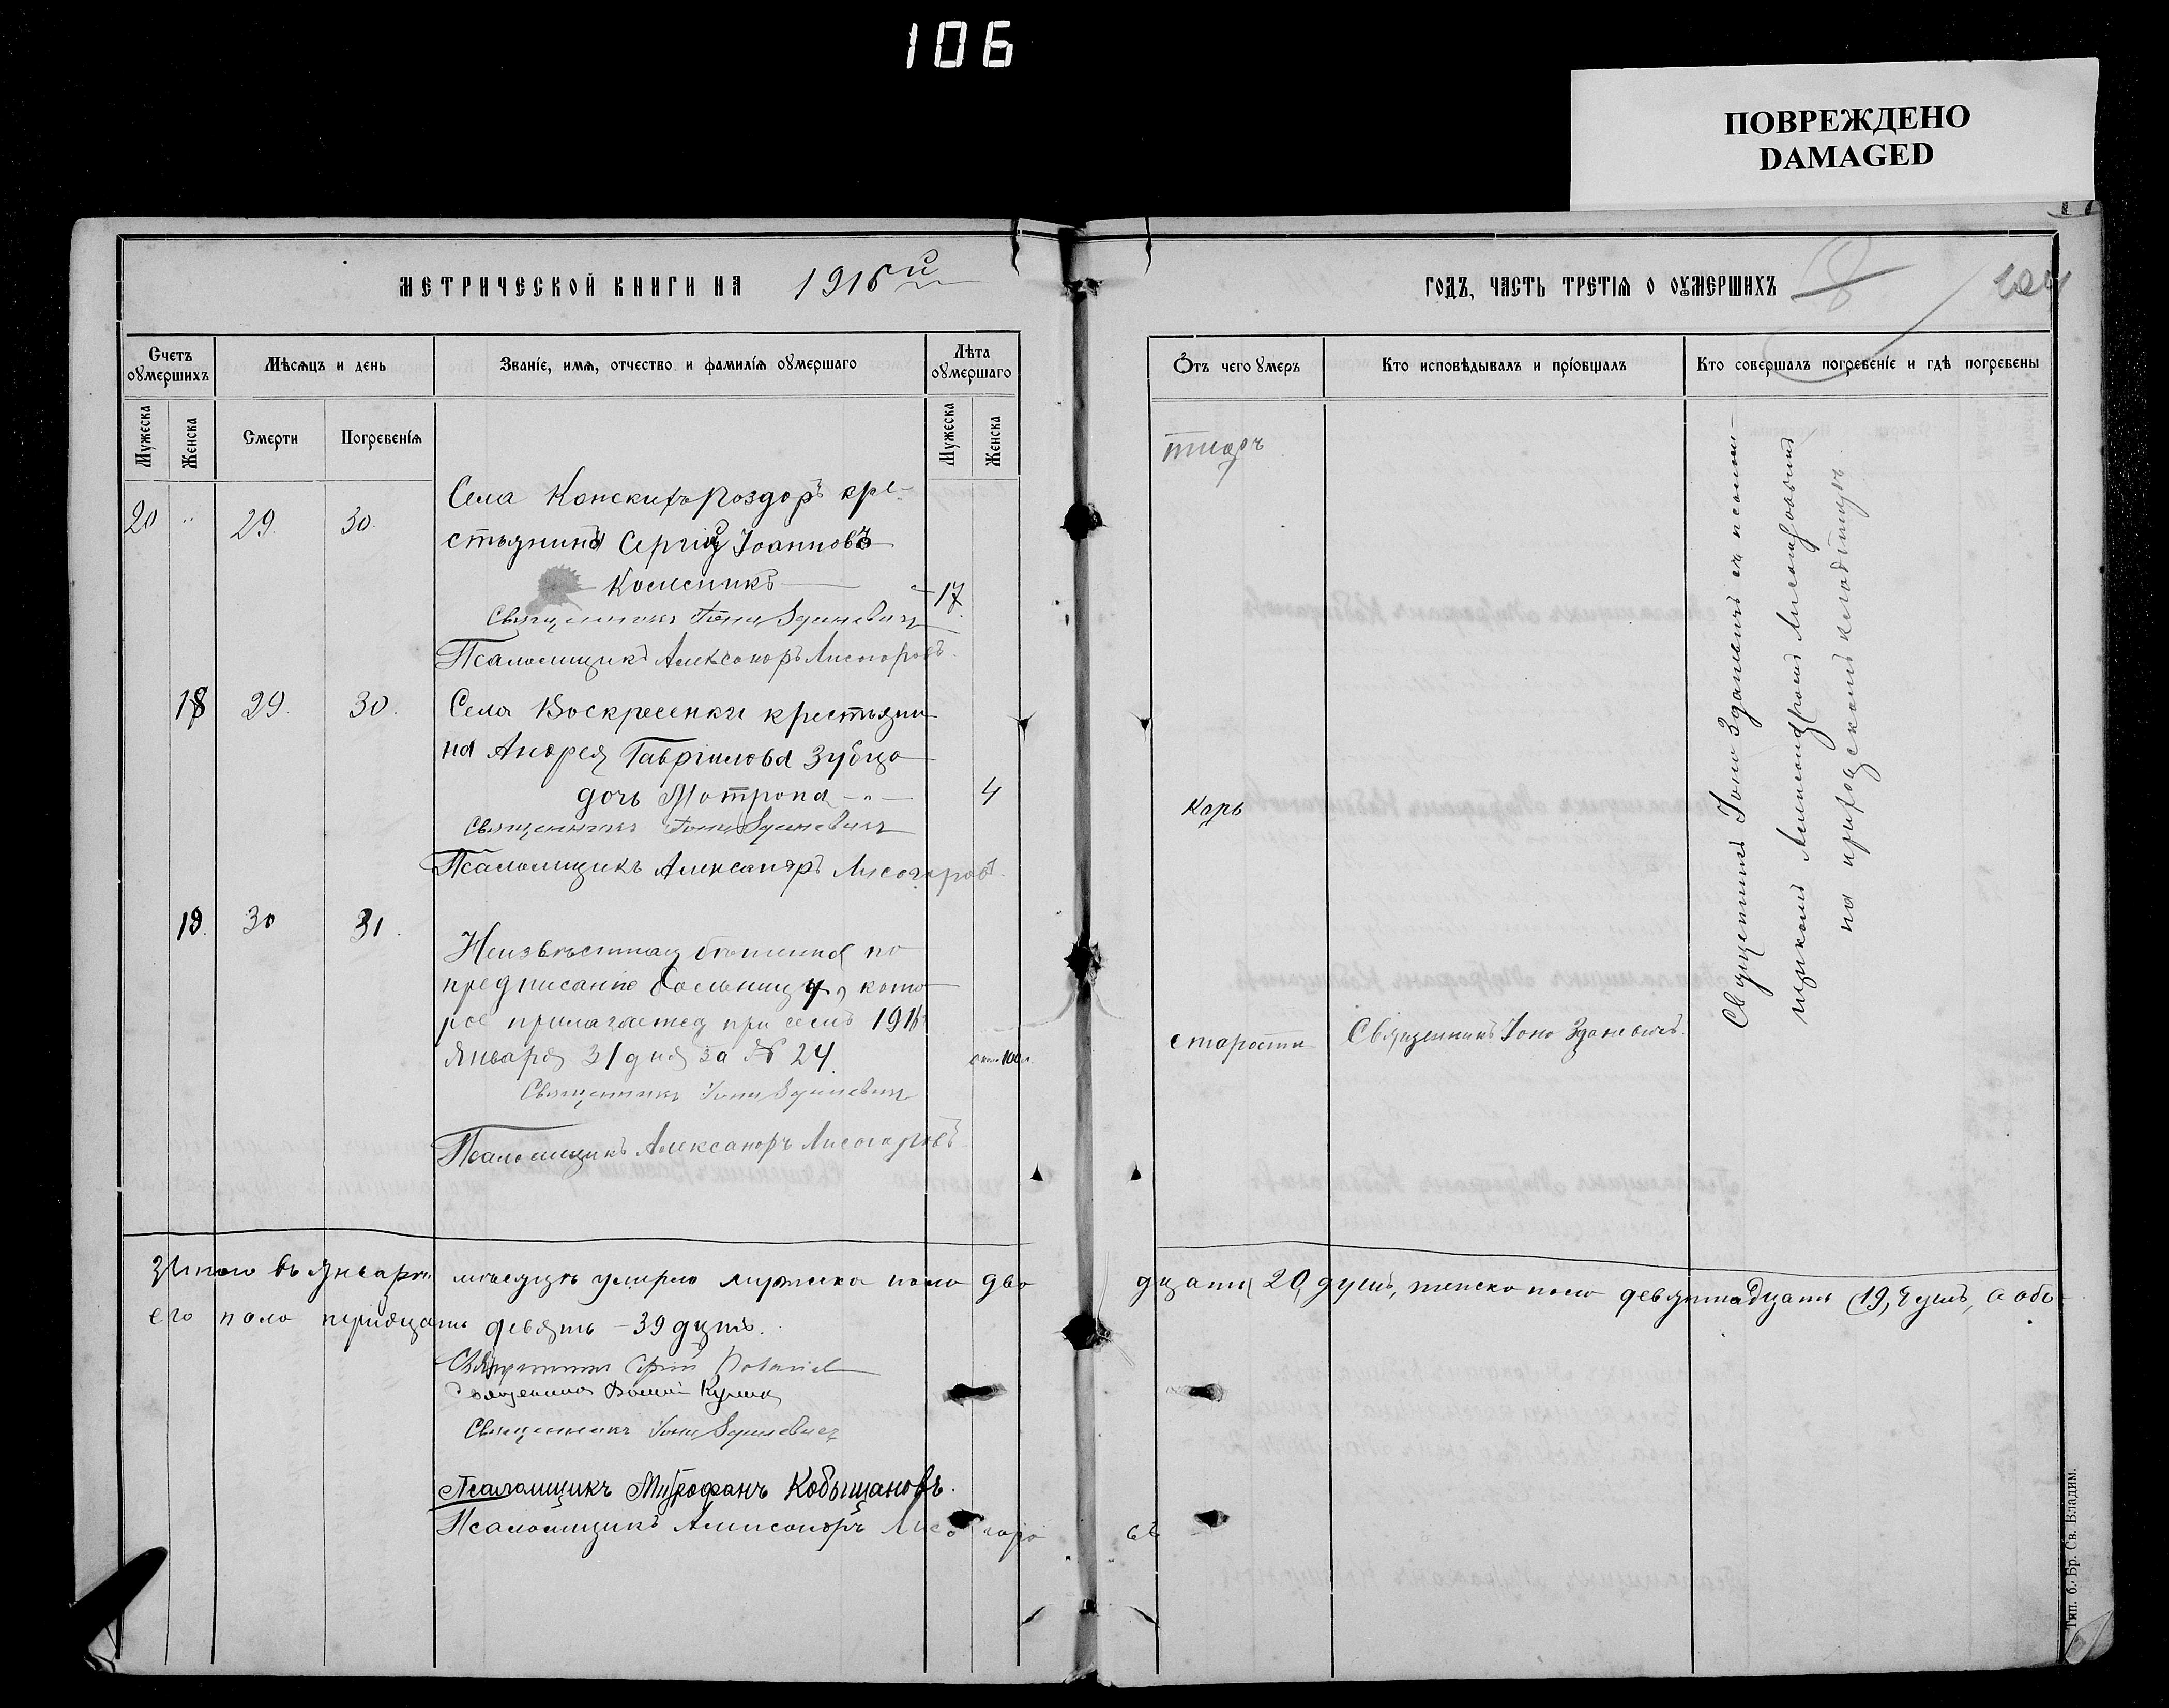 106
ПОВРЕЖДЕНО
DAMAGED
МЕТРИЧЕСКОЙ КНИГИ НА 1916й
ГОДЪ, ЧАСТЬ ТРЕТІЯ О ОУМЕРШИХЪ
Счетъ оумершихъ
Мѣсяцъ и день
Званіе, имя, отчество и фамилія оумершаго
Лѣта оумершаго
Мужеска
Женска
Смерти
Погребенія
Мужеска
Женска
Отъ чего умеръ
Кто исповѣдывалъ и пріобщалъ
Кто совершалъ погребеніе и гдѣ погребены
20 " 29. 30.
Села Конскихъ роздоръ кре-
стьянинъ Сергій Іоанновъ
Колесникъ 17
Священникъ Іона Зданевичъ
Псаломщикъ Александръ Лисогоровъ.
тифъ
18 29. 30.
Села Воскресенки крестьяни
на Андрея Гавріилова Зубца
дочь Мотрона 4
Священникъ Іона Зданевичъ
Псаломщикъ Александръ Лисогоровъ.
Корь
19. 30 31.
Неизвѣстная
предписанію больницы, кото
рое прилагается при семъ 1916
Января 31 дня за № 24.
около 100 л.
Священникъ Іона Зданевичъ
Псаломщикъ Александръ Лисогоровъ
старости
Священникъ Іона Зданевичъ.
Священникъ Іона Зданевичъ съ псалом-
щикомъ Александромъ Лисогоровымъ
на приходскомъ кладбищѣ.
Итого въ Январѣ мѣсяцѣ умерло мужска пола два
дцать (20) душъ, женска пола девятнадцать (19) душъ, а обо
его пола тридцать девять - 39 душъ.
Священникъ Сергій
Священникъ
Священникъ Іона Зданевичъ
Псаломщикъ Митрофанъ Кобыщановъ.
Псаломщикъ Александръ Лисогоровъ
Тип. б. Бр. Св. Владим.